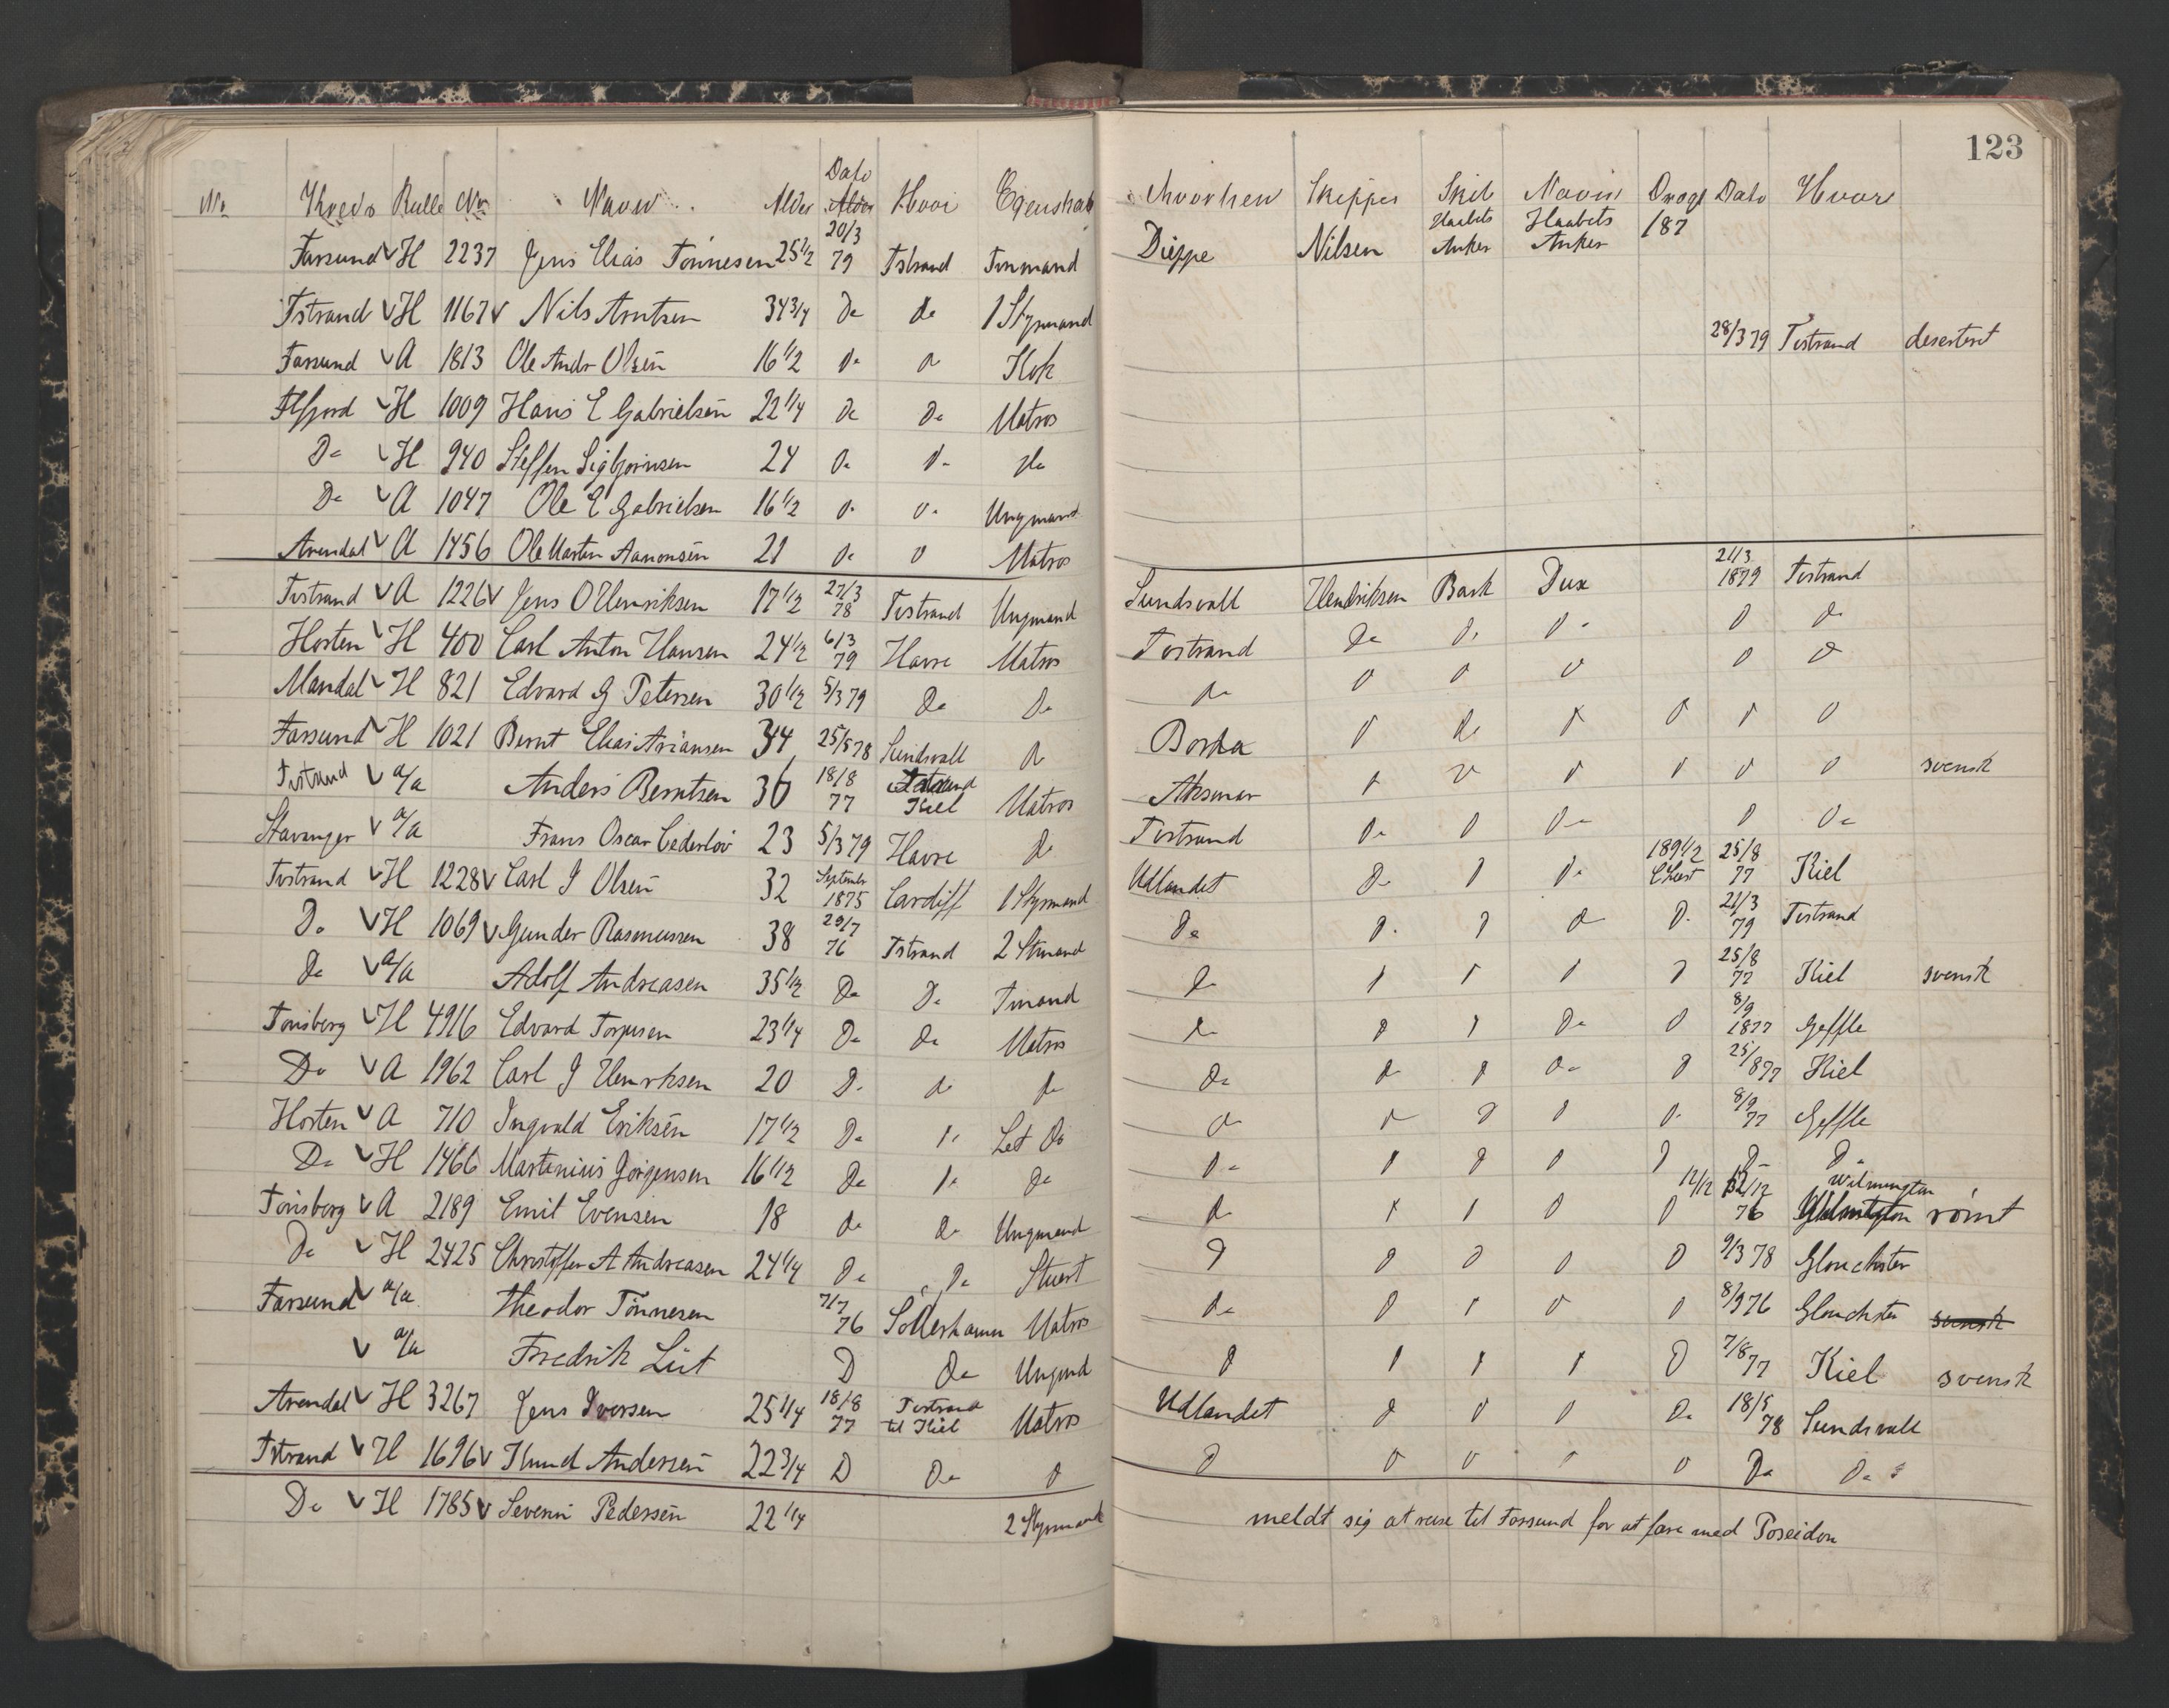 123
No Kreds Rulle No Navn Alder Dato Hvor Egenskab Hvorhen Skipper Skib Navn Drægt Dato Hvor
Farsund H 2237 Jens Elias Tönnesen 25 1/2 20/3 79 Tstrand Tmmand Dieppe Nilsen Haabets Anker Haabets Anker 187
Tstrand H 1167 Nils Arntsen 34 3/4 Do do 1 Stymand
Farsund A 1813 Ole Andr Olsen 16 1/2 Do do Kok 28/3 79 Tvstrand deserteret
Flfjord H 1009 Hans E Gabrielsen 22 1/4 Do Do Matros
Do H 940 Steffen Sigbjornsen 24 Do Do Do
Do A 1047 Ole E Gabrielsen 16 1/2 Do Do Ungmand
Arendal A 1456 Ole Marten Aanonsen 21 Do Do Matros
Tvstrand A 1226 Jens O Henriksen 17 1/2 27/3 78 Tvstrand Ungmand Sundsvall Hendriksen Bark Dux 21/3 1879 Tvstrand
Horten H 400 Carl Anton Hansen 24 1/2 6/3 79 Havre Matros Tvstrand Do Do Do Do Do
Mandal H 821 Edvard G Petersen 30 1/2 5/3 79 Do Do Do Do Do Do Do Do
Farsund H 1021 Bernt Elias Ariansen 34 25/5 78 Sundsvall Do Do Do Do Do Do Do
Tvstrand a/a Anders Berntsen 36 18/8 77 Kiel Matros Do Do Do Do Do Do svensk
Stavanger a/a Frans Oscar Cederlöv 23 5/3 79 Havre Do Tvstrand Do Do Do Do Do
Tvstrand H 1228 Carl J Olsen 32 September 1875 Cardiff 1 Stymand Udlandet Do Do Do 189 1/2 25/8 77 Kiel
Do H 1069 Gunder Rasmussen 38 29/7 76 Tstrand 2 Stmand Do Do Do Do Do 21/3 79 Tvstrand
Do a/a Adolf Andreasen 35 1/2 Do Do Tmand Do Do Do Do Do 25/8 77 Kiel svensk
Tönsberg H 4916 Edvard Torjusen 23 1/4 Do Do Matros Do Do Do Do Do 8/9 1877 Geffle
Do A 1962 Carl J Henriksen 20 Do Do Do Do Do Do Do Do 25/8 77 Kiel
Horten A 710 Ingvald Eriksen 17 1/2 Do Do Let Do Do Do Do Do Do 8/9 77 Geffle
Do H 1466 Martinius Jörgensen 16 1/2 Do Do Do Do Do Do Do Do Do Do
Tönsberg A 2189 Emil Evensen 18 Do Do Ungmand Do Do Do Do Do 12/12 76 Wilmington römt
Do H 2425 Christoffer A Andreasen 24 1/4 Do Do Stuert Do Do Do Do Do 9/3 78 Glouchster
Farsund a/a Theodor Tönnesen 7/7 76 Matros Do Do Do Do Do 8/9 76 Glouchster svensk
a/a Fredrik Lüt D Do Ungmd Do Do Do Do Do 7/8 77 Kiel svensk
Arendal H 3267 Jens Iversen 25 1/4 18/8 77 Tvstrand til Kiel Matros Udlandet Do Do Do Do 18/5 78 Sundsvall
Tstrand H 1696 Knud Andersen 22 3/4 D Do Do Do Do Do Do Do Do Do
Do H 1785 Severin Pedersen 22 1/4 2 Stymand meldt sig at reise til Farsund for at fare med Poseidon